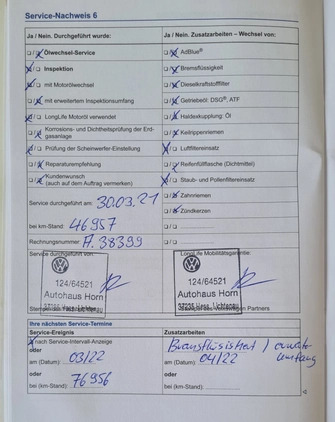 Service-Nachweis 6
Ja / Nein. Durchgeführt wurde:
Ölwechsel-Service
Inspektion
mit Motorölwechsel
mit erweitertem Inspektionsumfang
LongLife Motoröl verwendet
Korrosions- und Dichtheitsprüfung der Erd-
gasanlage
Prüfung der Scheinwerfer-Einstellung
Reparaturempfehlung
Kundenwunsch
(auch auf dem Auftrag vermerken)
Service durchgeführt am: 30.03.21
bei km-Stand: 46957
Rechnungsnummer: A.38399
Service durchgeführt von:
124/64521
Autohaus Horn
37235 Hess. Lichtenau
Ja / Nein. Zusatzarbeiten – Wechsel von:
AdBlue®
Bremsflüssigkeit
Dieselkraftstofffilter
Getriebeöl: DSG®, ATF
Haldexkupplung: Öl
Keilrippenriemen
Luftfiltereinsatz
Reifenfüllflasche (Dichtmittel)
Staub- und Pollenfiltereinsatz
Zahnriemen
Zündkerzen
LongLife Mobilitätsgarantie:
124/64521
Autohaus Horn
37235 Hess. Lichtenau
Ihre nächsten Service-Termine
Service-Ereignis
nach Service-Intervall-Anzeige
oder
am (Datum): 03/22
oder
bei (km-Stand): 76956
Zusatzarbeiten
04/22
oder
am (Datum):
oder
bei (km-Stand):